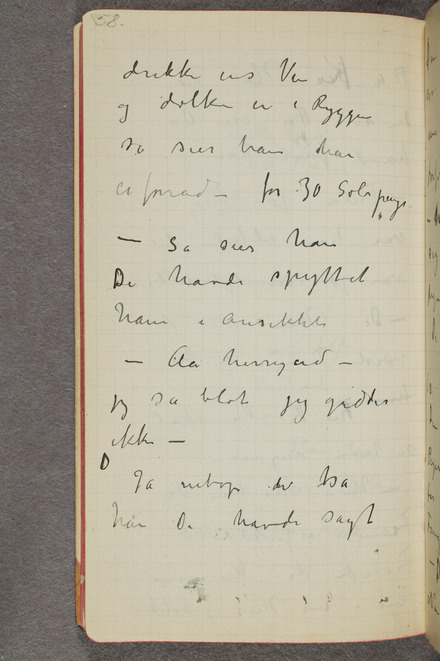 58.
drikke ens Vin
og dolken er i Ryggen
så sier han han
er forråd for 30 Sølvpenge
— Så sier han
De havde spyttet
ham i Ansiktet
— Aa herregud —
jeg sa blot jeg gidder
ikke —
Ja netop det sa
han De havde sagt